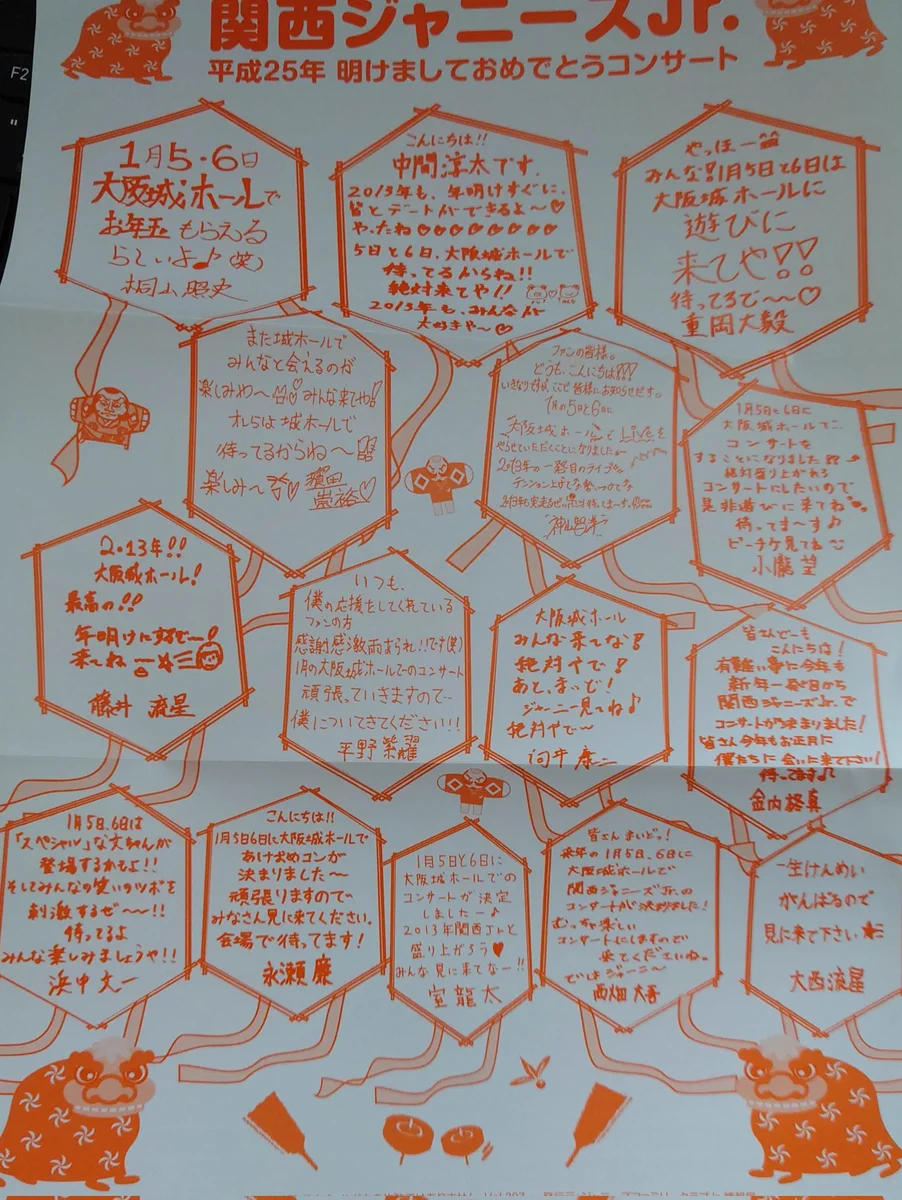 関西ジャニーズJr.
平成25年 明けましておめでとうコンサート
F2
1月5・6日
大阪城ホールで
お年玉もらえる
らしいよ♪(笑)
桐山照史
こんにちは!!
中間淳太です。
2013年も、年明けすぐに、
皆とデートができるよ〜♡
やったね♡♡♡♡♡♡♡♡
5日と6日、大阪城ホールで
待ってるからね!!
絶対来てや!!
2013年も、みんなが
大好きや〜♡
やっほー
みんな!!1月5日と6日は
大阪城ホールに
遊びに
来てや!!
待ってるで〜〜♡
重岡大毅
また城ホールで
みんなと会えるのが
楽しみや〜 みんな来てや!
オレらは城ホールで
待ってるからね〜
楽しみ〜
濵田
崇裕♡
ファンの皆様。
どうも、こんにちは!!!
いきなりですが、ここで皆様にお知らせです。
1月の5日と6日に
大阪城ホールでLiveを
やらせていただくことになりました
2013年の一発目のライブ
テンション上げてな
神山智洋
1月5日と6日に
大阪城ホールで、
コンサートを
することになりました
絶対盛り上がれる
コンサートにしたいので
是非遊びに来てね
待ってま〜す♪
ピーチケ見てね
小瀧望
2.13年!!
大阪城ホール!
最高の!!
年明けにするでー!
来てね
藤井 流星
いつも、
僕の応援をしてくれている
ファンの方
感謝感激雨あられ!!です(笑)
1月の大阪城ホールでのコンサート
頑張っていきますので…
僕についてきてください!!
平野紫耀
大阪城ホール
みんな来てな!
絶対やで!
あと、まいど!
ジャニー見てね♪
絶対やで〜
向井康二
皆さんどーも
こんにちは!
有難い事に今年も
新年一発目から
関西ジャニーズJr.で
コンサートが決まりました!
皆さん今年もお正月に
僕たちに会いに来て下さい!
待ってます♪
金内柊真
1月5日.6日は
「スペシャル」な文ちゃんが
登場するかもよ!!
そしてみんなの笑いのツボを
刺激するぜ〜〜!!
待ってるよ
みんな楽しみましょうや!!
浜中文一
こんにちは!!
1月5日6日に大阪城ホールで
あけおめコンが
決まりました〜
頑張りますので…
みなさん見に来てください。
会場で待ってます!
永瀬廉
1月5日と6日に
大阪城ホールでの
コンサートが決定
しましたー♪
2013年関西Jr.と
盛り上がろう♥
みんな見に来てなー!!
室龍太
皆さんまいどっ!
来年の1月5日、6日に
大阪城ホールで
関西ジャニーズJr.の
コンサートが決まりました!
むっちゃ楽しい
コンサートにしますので
来てくださいね。
ではジャーニ〜
西畑大吾
一生けんめい
がんばるので
見に来て下さい★
大西流星